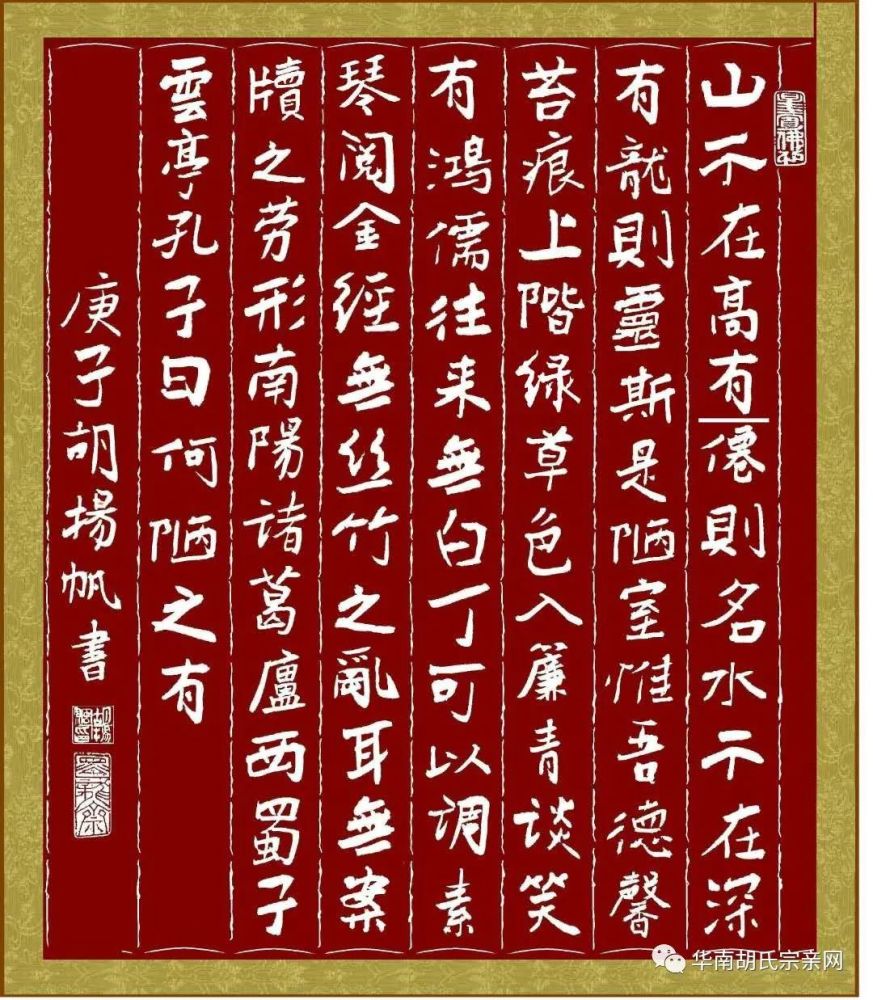 山不在高有僊則名水不在深
有龍則靈斯是陋室惟吾德馨
苔痕上階绿草色入簾青谈笑
有鴻儒往来無白丁可以调素
琴阅金經無丝竹之亂耳無案
牍之劳形南陽诸葛廬西蜀子
雲亭孔子曰何陋之有
庚子胡揚帆書
华南胡氏宗亲网